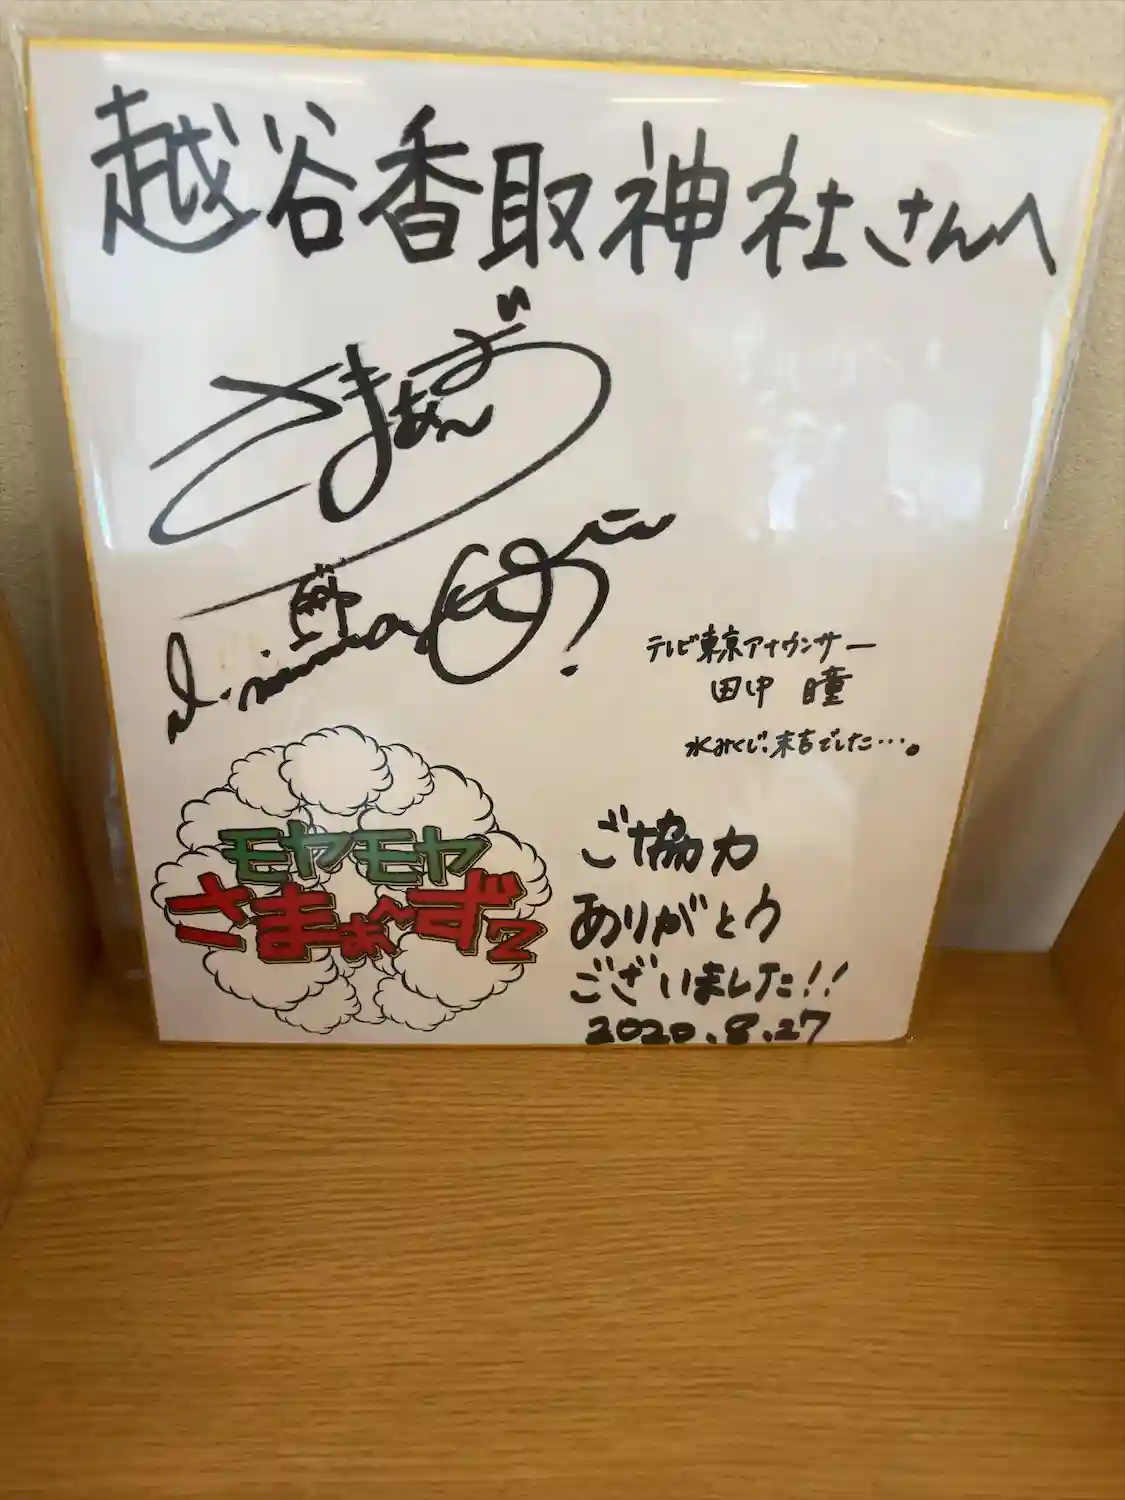 越谷香取神社さんへ
さまぁ~ず
テレビ東京アナウンサー
田中 瞳
水みくじ、末吉でした…。
モヤモヤ
さまぁ~ず2
ご協力
ありがとう
ございました!!
2020.8.27